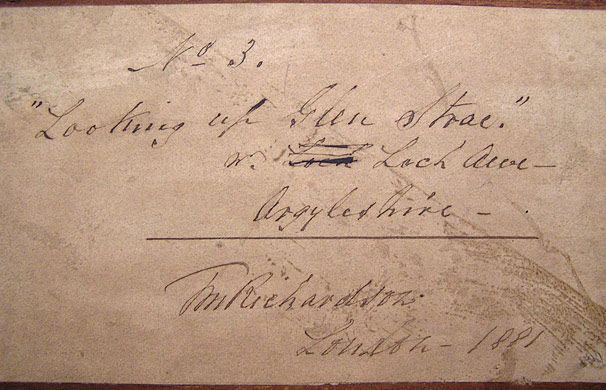 No 3.
"Looking up Glen Strae."
nr. Loch Loch Awe —
Argyleshire —
TM Richardson
London — 1881